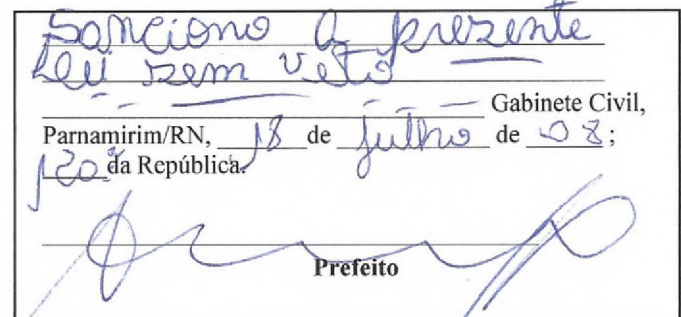 Sanciono a presente
Lei sem veto
Gabinete Civil,
Parnamirim/RN, 18 de julho de 08;
120ª da República.
Prefeito